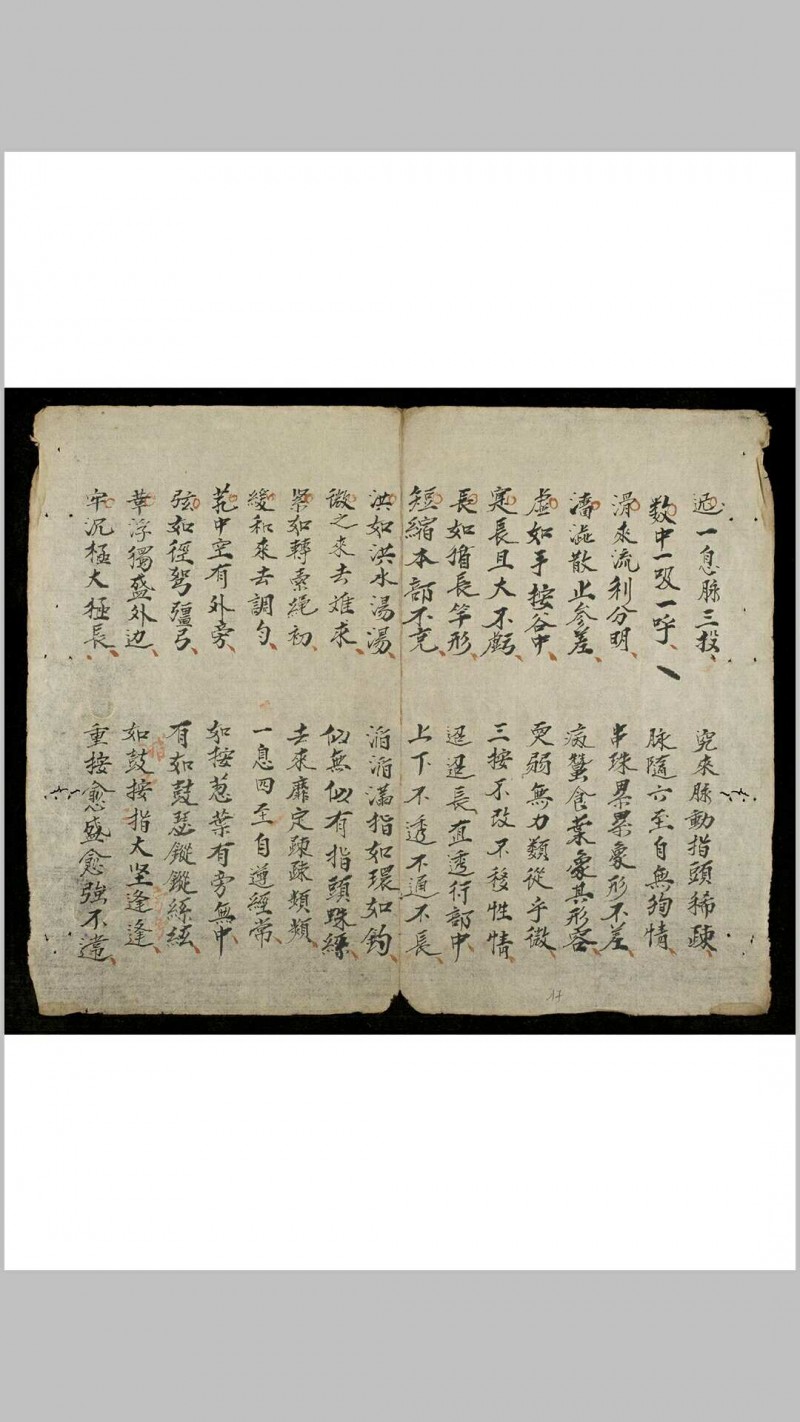 遲一息脉三投 究來脉動指頭稀踈
数中一吸一呼 脉隨六至自無狥情
滑來流利分明 串珠累累象形不差
濇澁散止参差 病蚕食葉象其形容
虚如手按谷中 耎弱無力類從乎微
寔長且大不虧 三按不改不移性情
長如揩長竿形 迢迢長直透行部中
短縮本部不充 上下不透不通不長
洪如洪水湯湯 滔滔滿指如環如鈎
微之來去难求 似無似有指頭蛛絲
緊如轉索繩初 去來靡定踈踈頻頻
緩和來去調勻 一息四至自道經常
芤中空有外旁 如按葱葉有旁無中
弦如徑弩彊弓 有如鼓瑟鏦鏦絲絃
革浮獨盛外边 如鼓按指大坚逢逢
牢沉極大極長 重按愈盛愈強不違
17